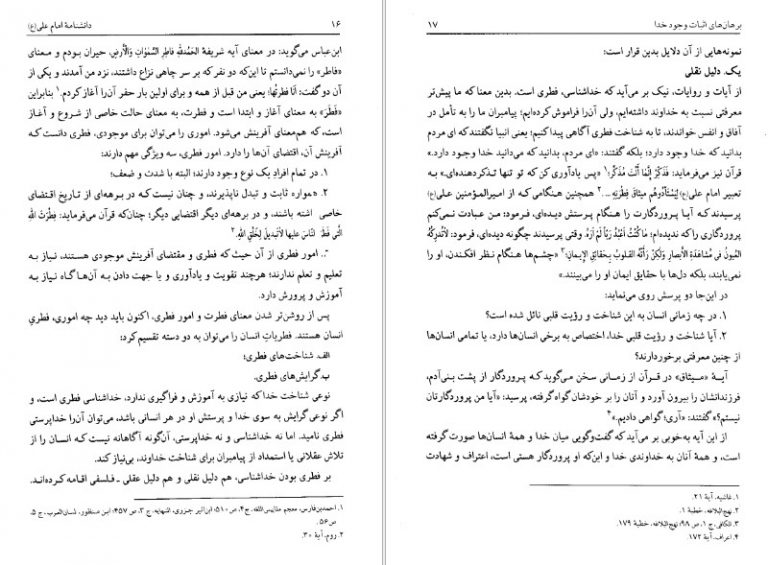 ۱۶ دانشنامهٔ امام علی(ع)
ابن‌عباس می‌گوید: در معنای آیه شریفهٔ الحَمْدُللهِ فاطِرِ السَّمٰوٰاتِ وَالْأَرضِ، حیران بودم و معنای
«فاطر» را نمی‌دانستم تا این‌که دو نفر که بر سر چاهی نزاع داشتند، نزد من آمدند و یکی از
آن دو گفت: أنَا فَطَرتُها؛ یعنی من قبل از همه و برای اولین بار حفر آن را آغاز کردم.۱ بنابراین
«فَطَرَ» به معنای آغاز و ابتدا است و فطرت، به معنای حالت خاصی از شروع و آغاز
است، که هم‌معنای آفرینش می‌شود. اموری را می‌توان برای موجودی، فطری دانست که
آفرینش آن، اقتضای آن‌ها را دارد. امور فطری، سه ویژگی مهم دارند:
۱. در تمام افراد یک نوع وجود دارند؛ البته با شدت و ضعف؛
۲. همواره ثابت و تبدل ناپذیرند، و چنان نیست که در برهه‌ای از تاریخ اقتضای
خاصی داشته باشند، و در برهه‌ای دیگر اقتضایی دیگر؛ چنان‌که قرآن می‌فرماید: فِطْرَتَ اللهِ
الَّتي فَطَرَ النّاسَ عَلَیها لاتَبدیلَ لِخَلْقِ اللهِ.۲
۳. امور فطری از آن حیث که فطری و مقتضای آفرینش موجودی هستند، نیاز به
تعلیم و تعلم ندارند؛ هرچند تقویت و یادآوری و یا جهت دادن به آن‌ها گاه نیاز به
آموزش و پرورش دارد.
پس از روشن‌تر شدن معنای فطرت و امور فطری، اکنون باید دید چه اموری، فطریِ
انسان هستند. فطریات انسان را می‌توان به دو دسته تقسیم کرد:
الف. شناخت‌های فطری؛
ب. گرایش‌های فطری.
نوعی شناخت خدا که نیازی به آموزش و فراگیری ندارد، خداشناسی فطری است، و
اگر نوعی گرایش به سوی خدا و پرستش او در هر انسانی باشد، می‌توان آن را خداپرستی
فطری نامید. اما نه خداشناسی و نه خداپرستی، آن‌گونه آگاهانه نیست که انسان را از
تلاش عقلانی یا استمداد از پیامبران برای شناخت خداوند، بی‌نیاز کند.
بر فطری بودن خداشناسی، هم دلیل نقلی و هم دلیل عقلی ـ فلسفی اقامه کرده‌اند.
۱. احمدبن‌فارس، معجم مقاییس‌اللغه، ج۴، ص ۵۱۰؛ ابن‌اثیر جزری، النهایه، ج ۳، ص ۴۵۷؛ ابن منظور، لسان‌العرب، ج ۵،
ص ۵۶.
۲. روم، آیهٔ ۳۰.
برهان‌های اثبات وجود خدا ۱۷
نمونه‌هایی از آن دلایل بدین قرار است:
یک. دلیل نقلی
از آیات و روایات، نیک بر می‌آید که خداشناسی، فطری است. بدین معنا که ما پیش‌تر
معرفتی نسبت به خداوند داشته‌ایم، ولی آن‌را فراموش کرده‌ایم؛ پیامبران ما را به تأمل در
آفاق و انفس خواندند، تا به شناخت فطری آگاهی پیدا کنیم؛ یعنی انبیا نگفتند که ای مردم
بدانید که خدا وجود دارد؛ بلکه گفتند: «ای مردم، بدانید که می‌دانید خدا وجود دارد.»
قرآن نیز می‌فرماید: فَذَكِّرْ إنَّما أَنْتَ مُذَكِّرٌ؛۱ «پس یادآوری کن که تو تنها تذکردهنده‌ای.» به
تعبیر امام علی(ع) لِیَسْتَأْدُوهُم مِیثاقَ فِطْرَتِهِ....۲ همچنین هنگامی‌که از امیرالمؤمنین علی(ع)
پرسیدند که آیا پروردگارت را هنگام پرستش دیده‌ای، فرمود: من عبادت نمی‌کنم
پروردگاری را که ندیده‌ام؛ ما كُنْتُ أعْبُدُ رَبّاً لَمْ أَرَهُ. وقتی پرسیدند چگونه دیده‌ای، فرمود: لاتُدرِکُهُ
العُیونُ فی مُشاهَدَةِ الأبصارِ وَلٰکِنْ رَأَتْهُ القُلوبُ بِحَقائِقِ الإیمانِ؛۳ «چشم‌ها هنگام نظر افکندن، او را
نمی‌یابند، بلکه دل‌ها با حقایق ایمان او را می‌بینند.»
در این‌جا دو پرسش روی می‌نماید:
۱. در چه زمانی انسان به این شناخت و رؤیت قلبی نائل شده است؟
۲. آیا شناخت و رؤیت قلبی خدا، اختصاص به برخی انسان‌ها دارد، یا تمامی انسان‌ها
از چنین معرفتی برخوردارند؟
آیهٔ «میثاق» در قرآن از زمانی سخن می‌گوید که پروردگار از پشت بنی‌آدم،
فرزندانشان را بیرون آورد و آنان را بر خودشان گواه گرفته، پرسید: «آیا من پروردگارتان
نیستم؟» گفتند: «آری؛ گواهی دادیم.»۴
از این آیه به‌خوبی بر می‌آید که گفت‌وگویی میان خدا و همهٔ انسان‌ها صورت گرفته
است، و همهٔ آنان به خداوندی خدا و این‌که او پروردگار هستی است، اعتراف و شهادت
۱. غاشیه، آیهٔ ۲۱.
۲. نهج‌البلاغه، خطبهٔ ۱.
۳. الکافی، ج ۱، ص ۹۸؛ نهج‌البلاغه، خطبهٔ ۱۷۹.
۴. اعراف، آیهٔ ۱۷۲.